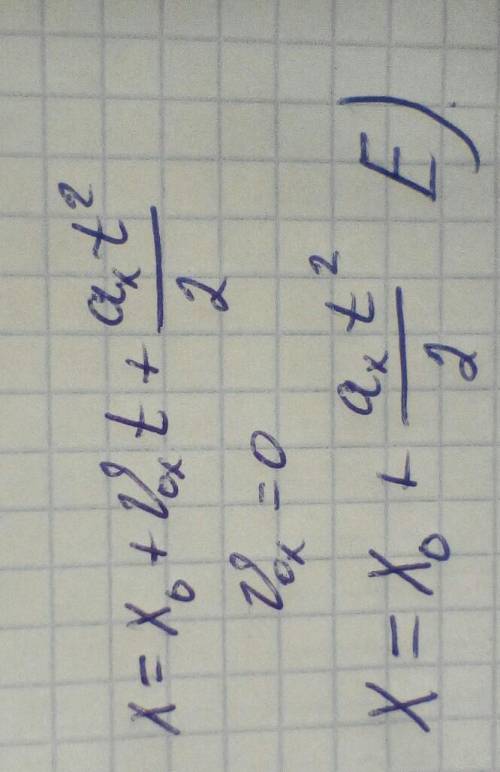 x = x₀ + v₀ₓt + aₓt²/2
v₀ₓ = 0
x = x₀ + aₓt²/2 E)